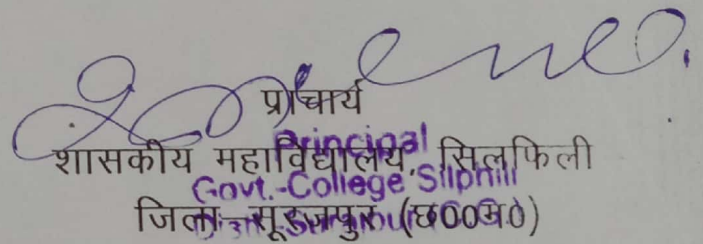 प्राचार्य
Principal
शासकीय महाविद्यालय, सिलफिली
Govt.-College Silphili
जिला-सूरजपुर (छ0ग0)